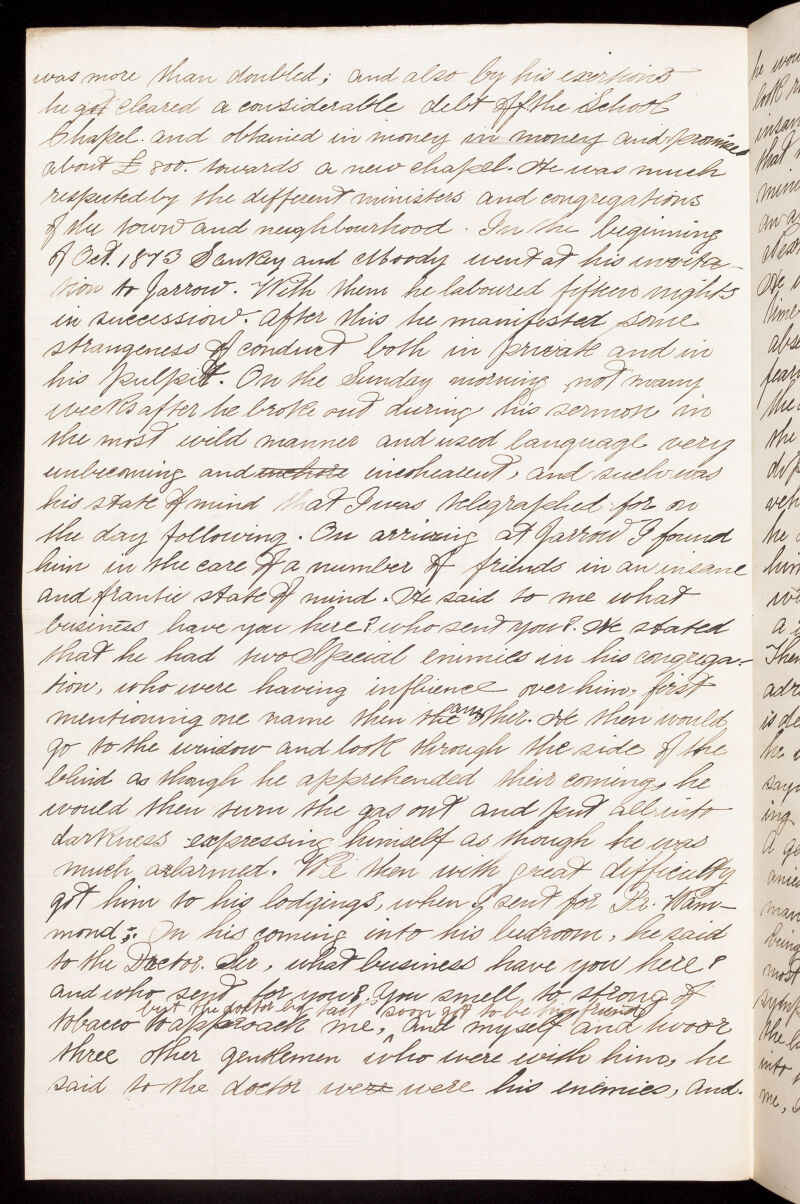 was more than doubled; and also by his exertions
he got cleared a considerable debt off the School
Chapel. and obtained in money in money and promises
about £800. towards a new chapel. He was much
respected by the different ministers and congregations
of the town and neighbourhood. In the beginning
of Oct. 1873 Sankey and Moody went at his invita-
tion to Jarrow. With them he laboured fifteen nights
in succession. After this he manifested some
strangeness of conduct both in private and in
his pulpit. On the Sunday morning not many
weeks after he broke out during his sermon in
the most wild manner and used language very
unbecoming and incoherent, and such was
his state of mind that I was telegraphed for on
the day following. On arriving at Jarrow I found
him in the care of a number of friends in an insane
and frantic state of mind. He said to me what
business have you here? who sent you? He stated
that he had two Special enimies in his congrega-
tion, who were having influence over him, first
mentioning one name then the another. He then would
go to the window and look through the side of the
blind as though he apprehended their coming, he
would then turn the gas out and put all into
darkness expressing himself as though he was
much alarmed. We then with great difficulty
got him to his lodgings, when I sent for Dr. Ham-
mond; On his coming into his bedroom, he said
to the Doctor. Sir, what business have you here?
and who sent for you? You smell to strong of
but the doctor by tact soon got to be his friend
tobacco to approach me, and myself and two or
three other gentlemen who were with him, he
said to the doctor were were his enimies, and.
he wou
look
insan
that
mini
an a
He
time
abse
fear
the
the
he
him
a
Then
adr
is de
he
sayi
ing
a ge
man
being
most
symp
the
into
me,